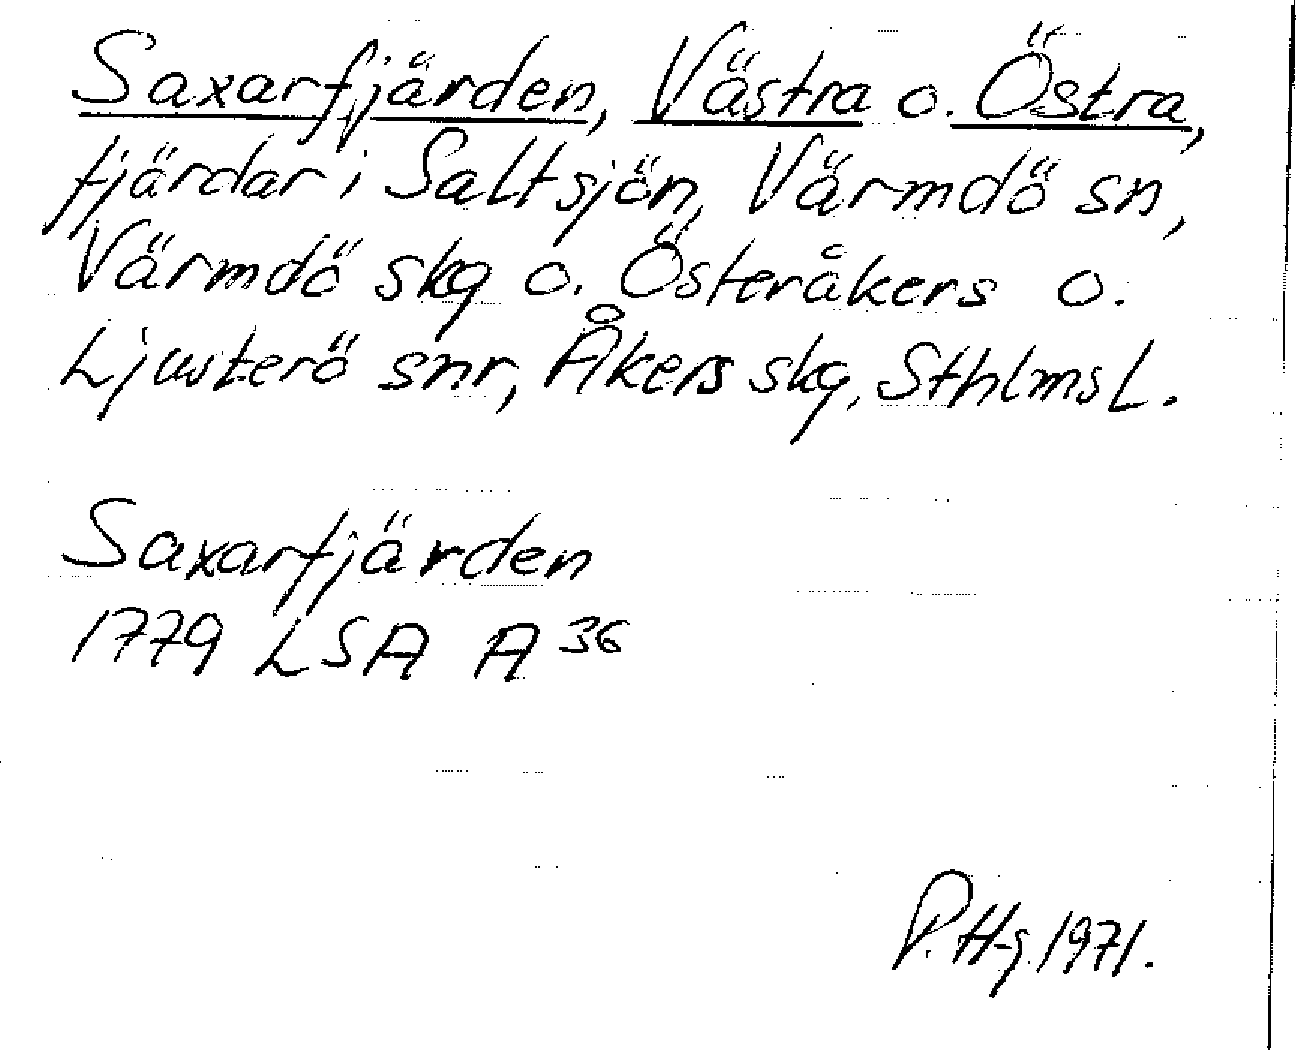 Saxarfjärden, Västra o. Östra,
fjärdar i Saltsjön, Värmdö sn,
Värmdö skg o. Österåkers o.
Ljusterö snr, Åkers skg, Sthlms L.
Saxarfjärden
1779 LSA A 36
P. Hg. 1971.